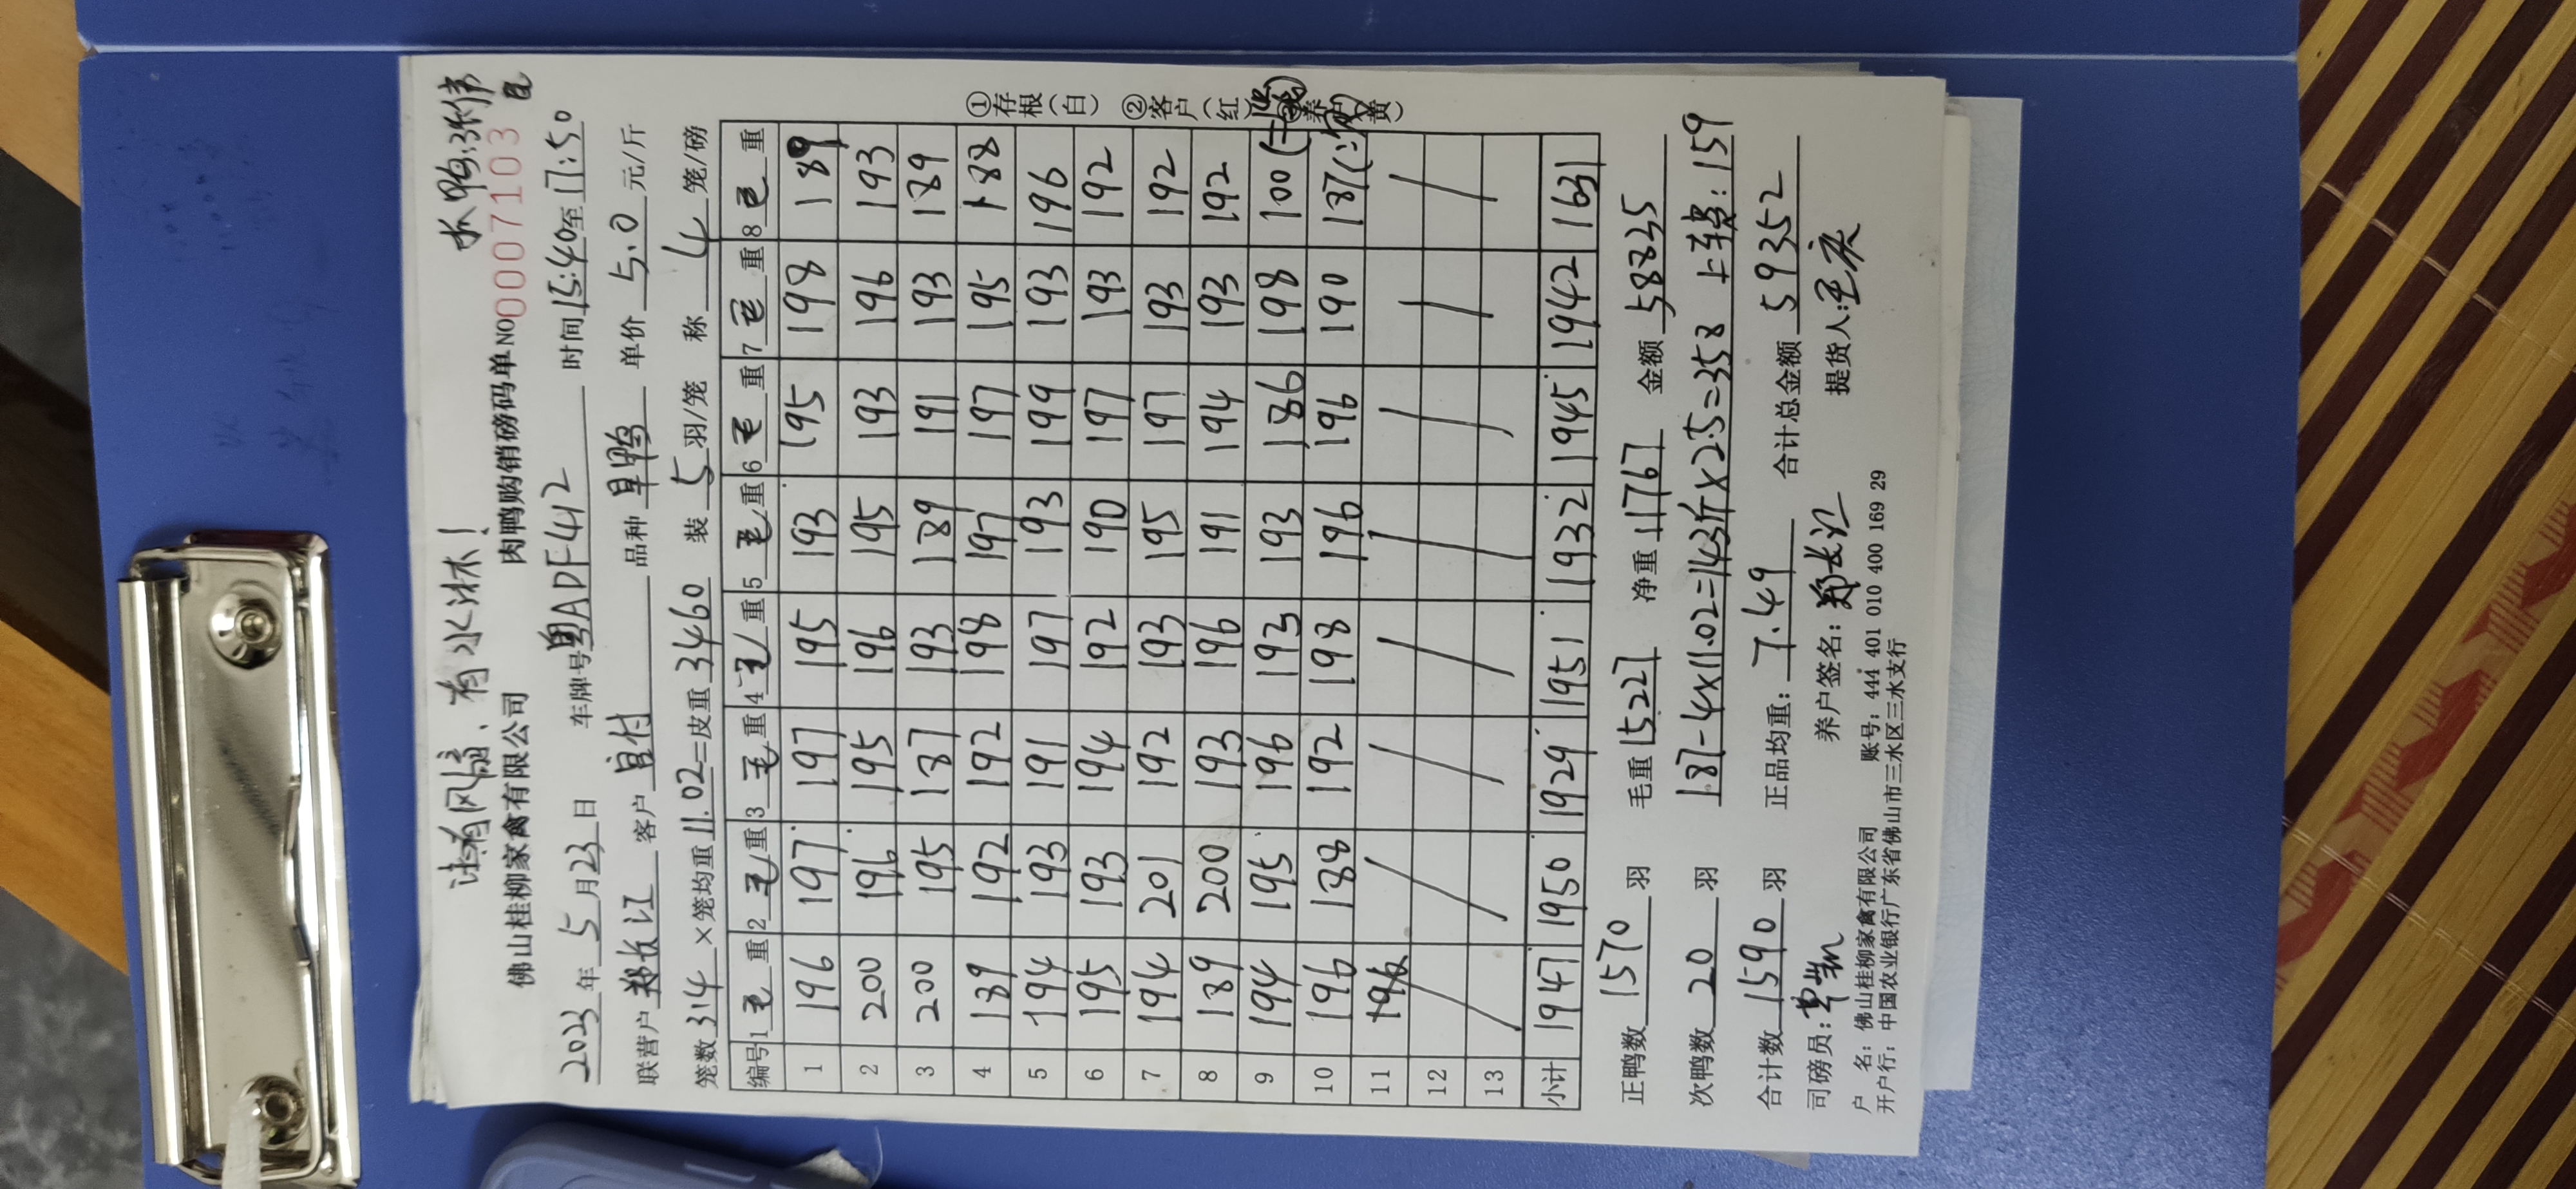 注有风扇、有水淋！ 水鸭:张伟
佛山桂柳家禽有限公司 肉鸭购销磅码单 NO 0007103
2023年5月23日 车牌号 粤ADF412 时间 15:40至17:50
联营户 郑长江 客户 宜付 品种 旱鸭 单价 5.0 元/斤
笼数 314 ×笼均重 11.02=皮重 3460 装 5 羽/笼 称 4 笼/磅
编号 1毛重 2毛重 3毛重 4毛重 5毛重 6毛重 7毛重 8毛重
1 196 197 197 195 193 195 198 189
2 200 196 195 196 195 193 196 193
3 200 195 187 193 189 191 193 189
4 189 192 192 198 197 197 195 188
5 194 193 191 197 193 199 193 196
6 195 193 194 192 190 197 193 192
7 194 201 192 193 195 197 193 192
8 189 200 193 196 191 194 193 192
9 194 195 196 193 193 186 198 100
10 196 188 192 198 196 196 190 187
11
12
13
小计 1947 1950 1929 1951 1932 1945 1942 1631
正鸭数 1570 羽 毛重 15227 净重 11767 金额 58835
次鸭数 20 羽 187-4×11.02=143斤×2.5=358 上车费:159
合计数 1590 羽 正品均重: 7.49 合计总金额 59352
司磅员: 养户签名: 郑长江 提货人:
户 名: 佛山桂柳家禽有限公司 账号: 444 401 010 400 169 29
开户行: 中国农业银行广东省佛山市三水区三水支行
①存根(白) ②客户(红) 养户(黄)